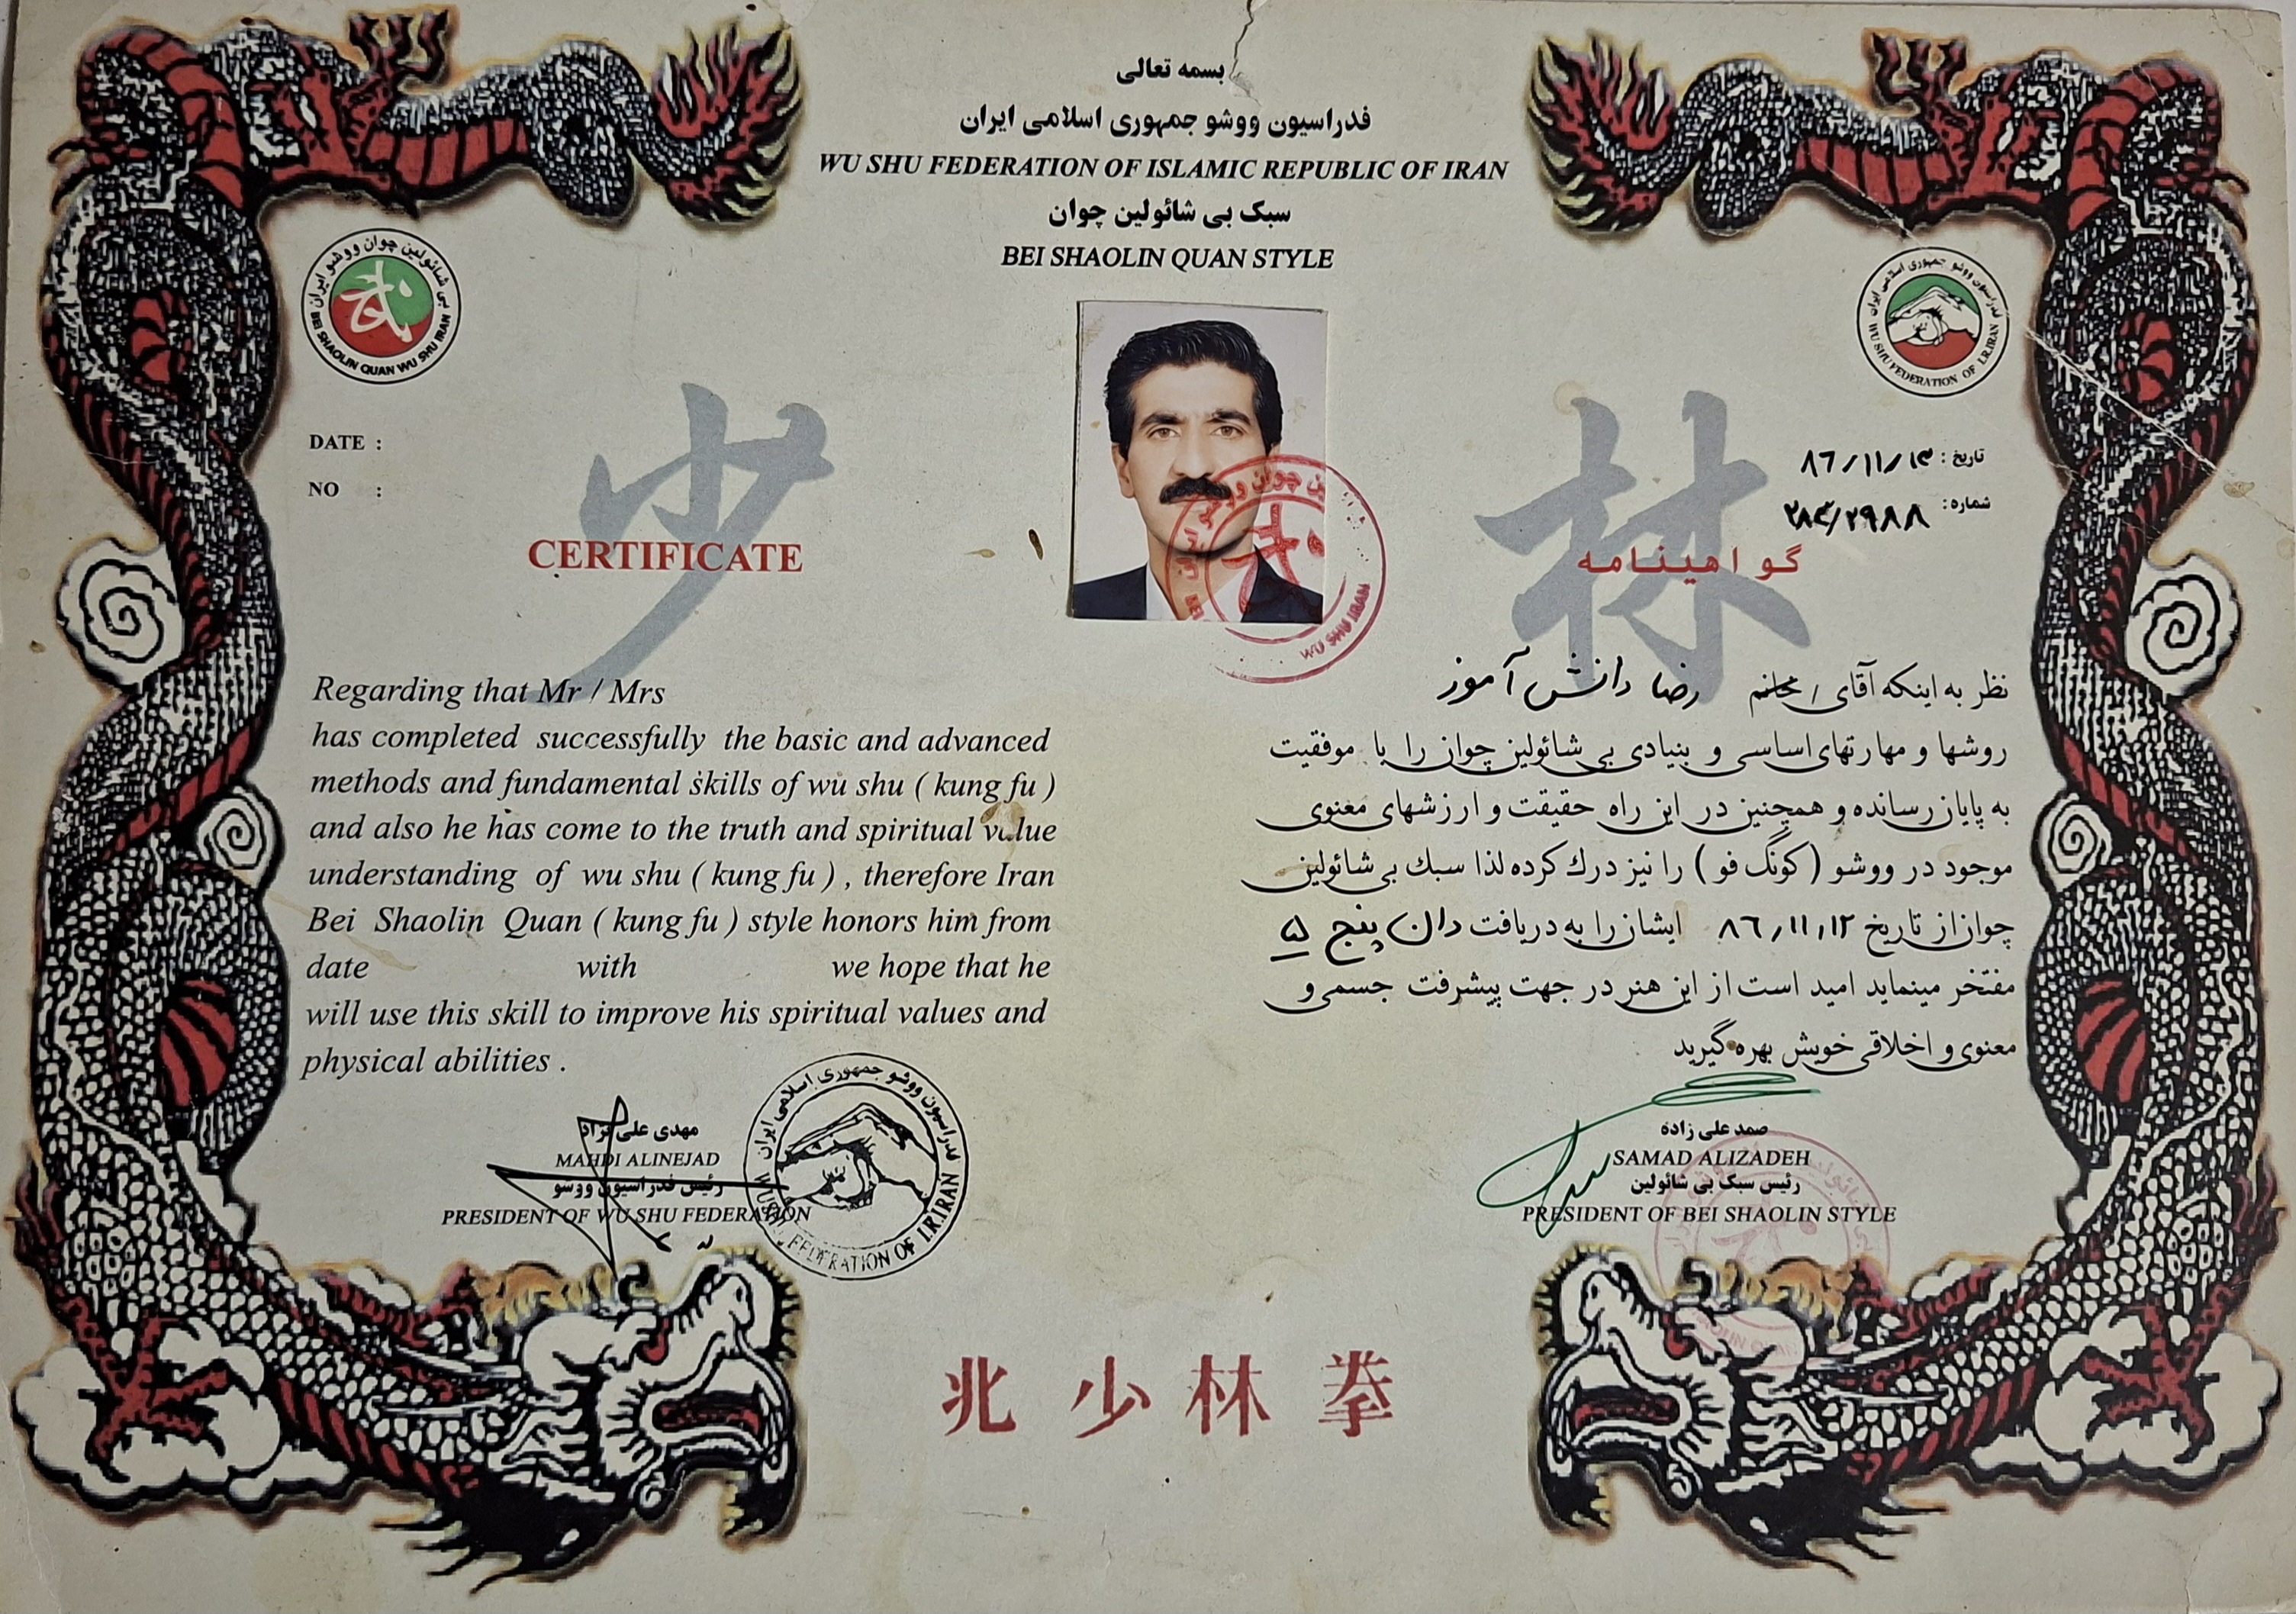 بسمه تعالی
فدراسیون ووشو جمهوری اسلامی ایران
WU SHU FEDERATION OF ISLAMIC REPUBLIC OF IRAN
سبک بی شائولین چوان
BEI SHAOLIN QUAN STYLE
بی شائولین چوان ووشو ایران
BEI SHAOLIN QUAN WU SHU IRAN
فدراسیون ووشو جمهوری اسلامی ایران
WU SHU FEDERATION OF I.R.IRAN
DATE :
NO :
تاریخ : ۸۶/۱۱/۱۳
شماره : ۲۸۳/۲۹۸۸
少 林
CERTIFICATE
گواهینامه
WU SHU IRAN
Regarding that Mr / Mrs
has completed successfully the basic and advanced
methods and fundamental skills of wu shu ( kung fu )
and also he has come to the truth and spiritual value
understanding of wu shu ( kung fu ) , therefore Iran
Bei Shaolin Quan ( kung fu ) style honors him from
date with we hope that he
will use this skill to improve his spiritual values and
physical abilities .
نظر به اینکه آقای / خانم رضا دانش آموز
روشها و مهارتهای اساسی و بنیادی بی شائولین چوان را با موفقیت
به پایان رسانده و همچنین در این راه حقیقت و ارزشهای معنوی
موجود در ووشو (کونگ فو) را نیز درك کرده لذا سبك بی شائولین
چوان از تاریخ ۸۶/۱۱/۱۲ ایشان را به دریافت دان پنج ۵
مفتخر مینماید امید است از این هنر در جهت پیشرفت جسمی و
معنوی و اخلاقی خویش بهره گیرید
مهدی علی نژاد
MAHDI ALINEJAD
رئیس فدراسیون ووشو
PRESIDENT OF WU SHU FEDERATION
فدراسیون ووشو جمهوری اسلامی ایران
WUSHU FEDERATION OF I.R.IRAN
صمد علی زاده
SAMAD ALIZADEH
رئیس سبک بی شائولین
PRESIDENT OF BEI SHAOLIN STYLE
北 少 林 拳